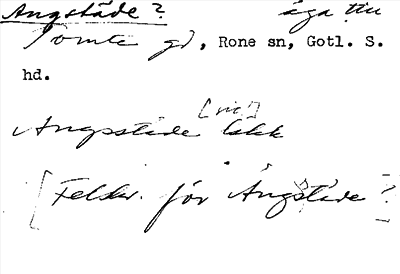 Angstäde? äga till
Tomte gd, Rone sn, Gotl. S.
hd.
[sic!]
Angsstäde läkk
[Felskr. för Ängstäde?]